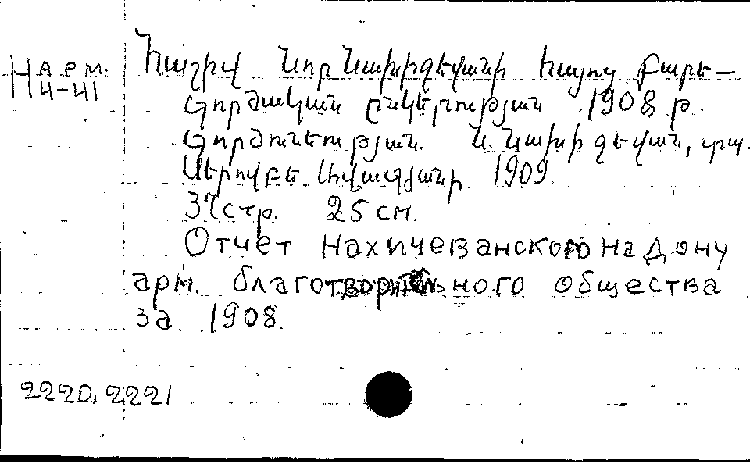 Н арм.
4-41
Հաշիվ Նոր Նախիջևանի հայոց բարե-
գործական ընկերության 1908 թ.
գործունեության. Ն. Նախիջևան, տպ.
Սերովբե Ավագյանի 1909
37 стр. 25 см.
Отчет Нахичеванского на Дону
арм. благотворительного общества
за 1908.
2220, 2221